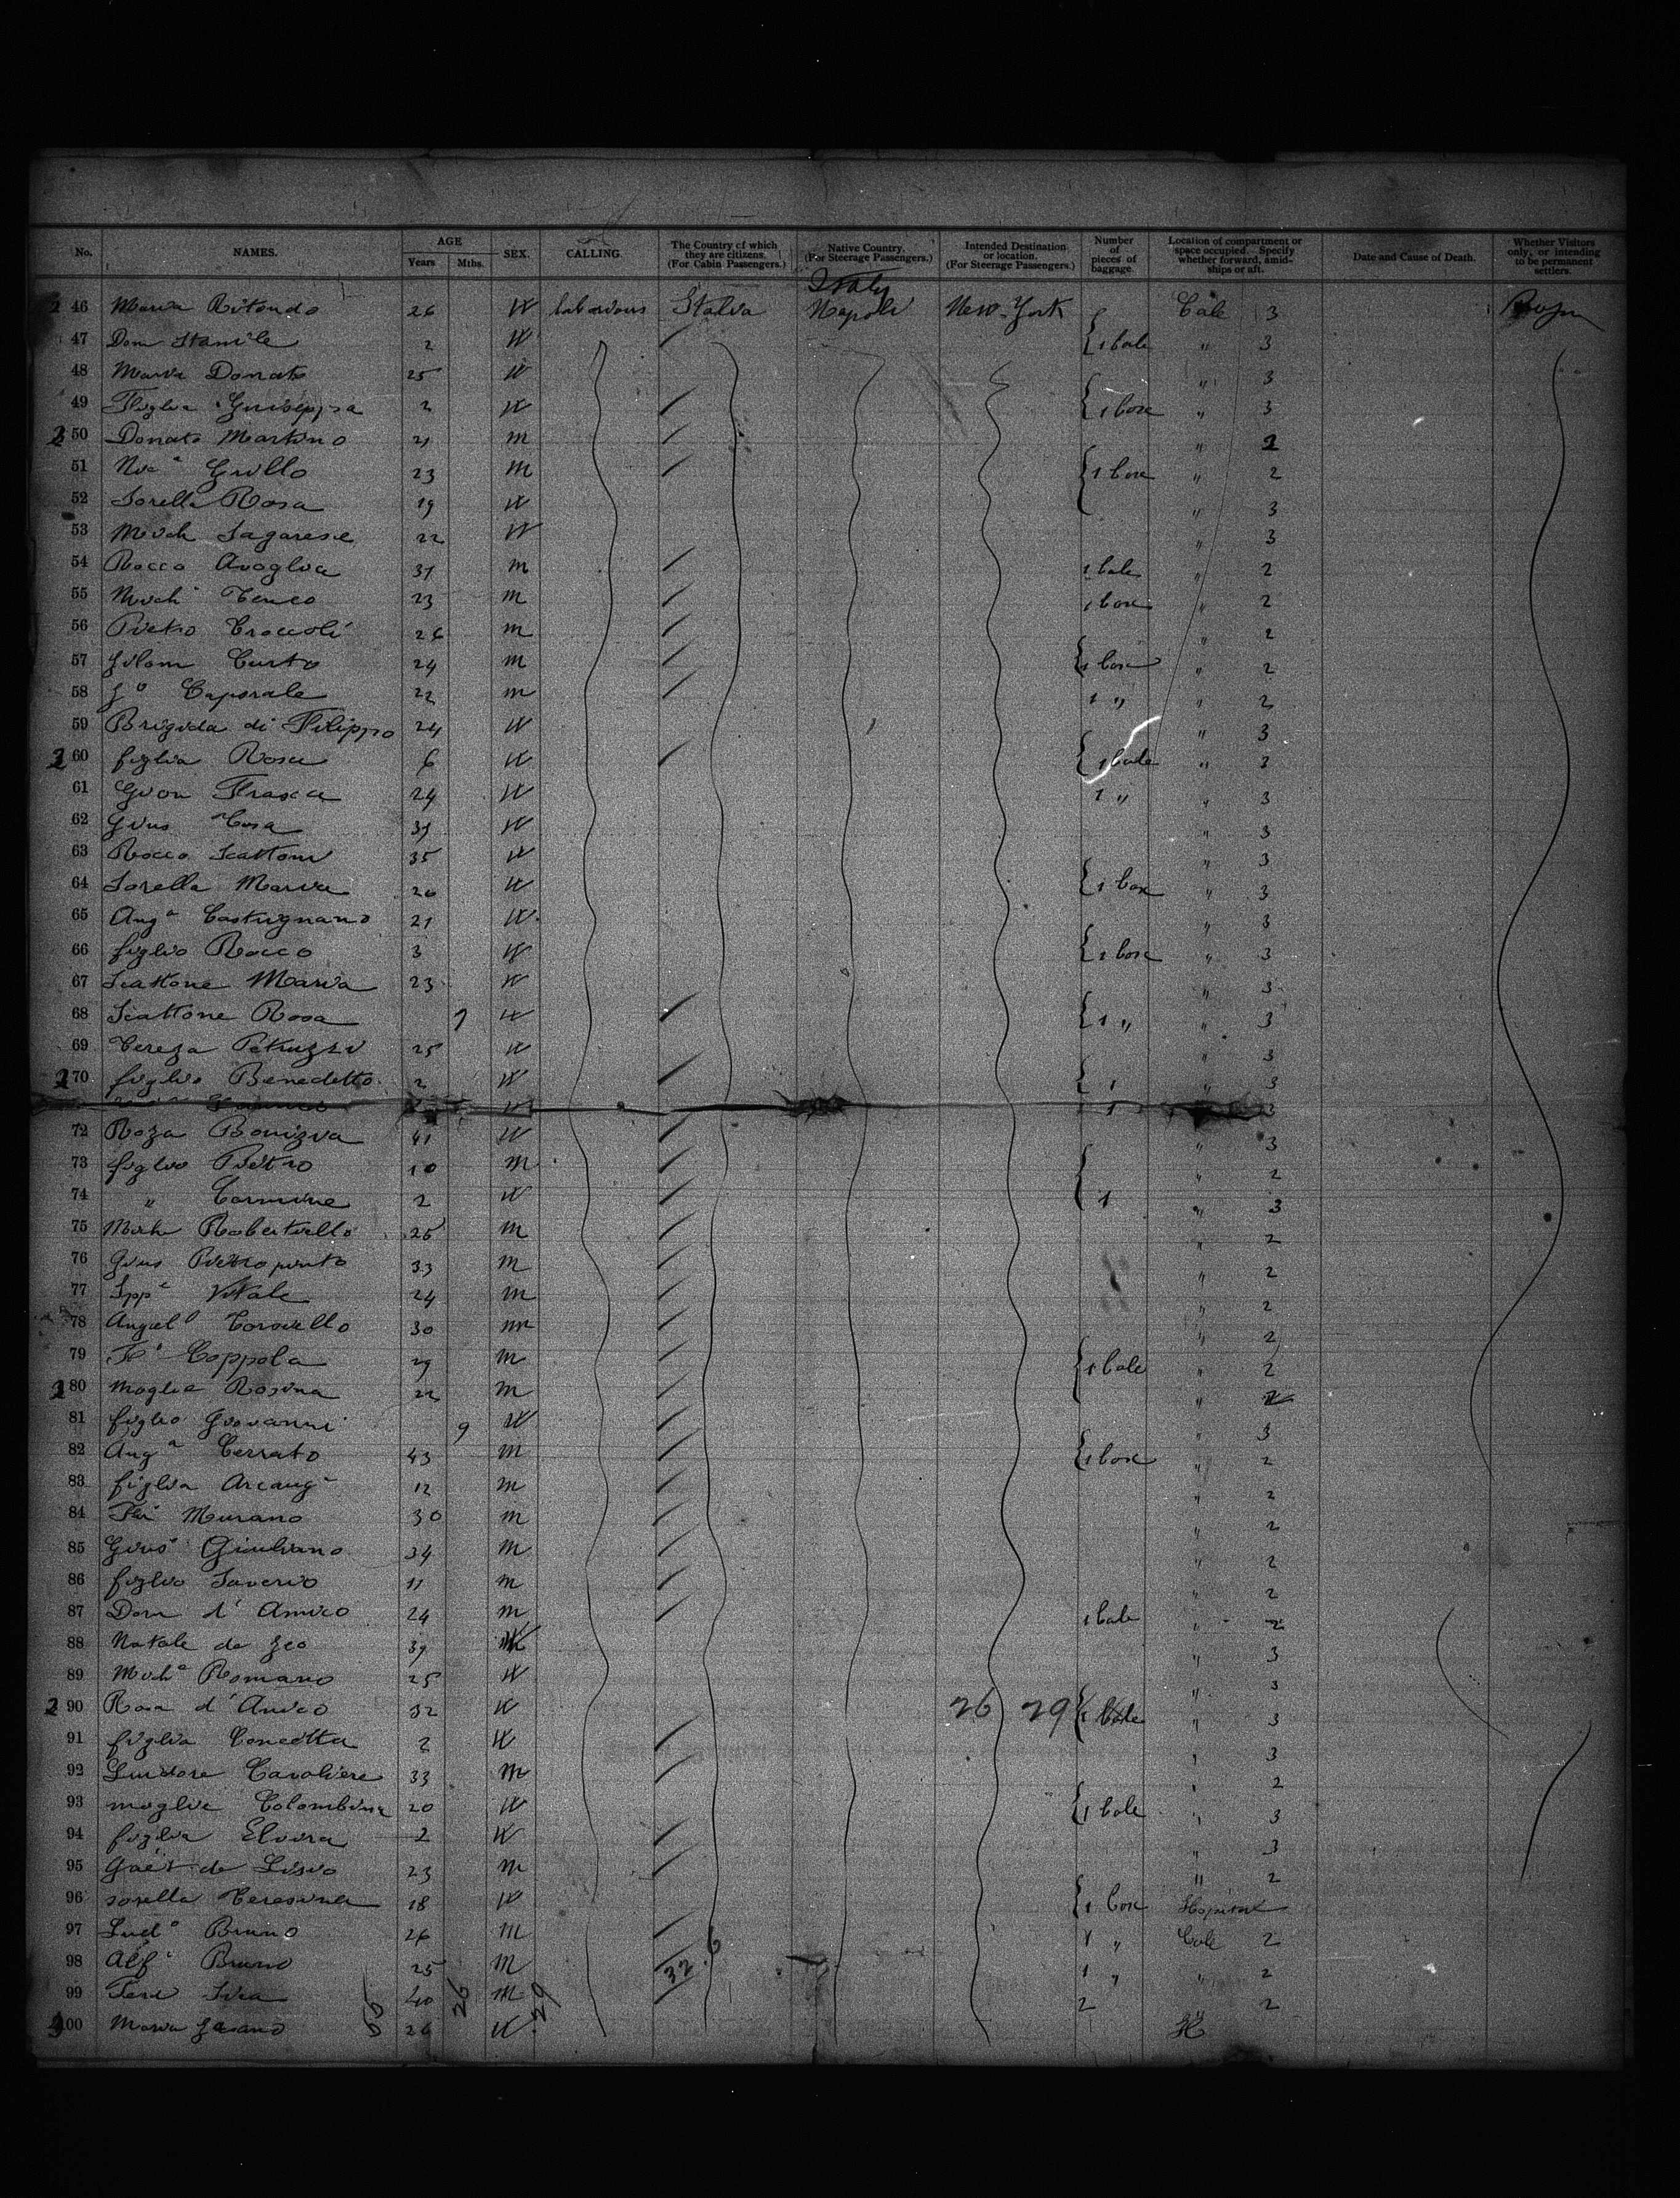 No. NAMES. AGE Years Mths. SEX. CALLING. The Country of which they are citizens. (For Cabin Passengers.) Native Country. (For Steerage Passengers.) Intended Destination or location. (For Steerage Passengers.) Number of pieces of baggage. Location of compartment or space occupied. Specify whether forward, amidships or aft. Date and Cause of Death. Whether Visitors only, or intending to be permanent settlers.
Italy
46 Maria Ritondo 26 W Italia Napoli New-York Cale 3
47 Dom Stamile 2 W 1 bale " 3
48 Maria Donato 25 W " 3
49 Figlia Guiseppa 2 W 1 box " 3
50 Donato Martino 21 m " 2
51 Grillo 23 m 1 box " 2
52 Sorella Rosa 19 W " 3
53 Mich Lagarese 22 W " 3
54 Rocco Avoglia 31 m 1 bale " 2
55 Mich Tenco 23 m 1 box " 2
56 Pietro Croccoli 26 m " 2
57 Gilom Curto 24 m 1 box " 2
58 Caporale 22 m 1 " " 2
59 Brigida di Filippo 24 W " 3
60 figlia Rosa 6 W 1 bale " 3
61 Giov Frasca 24 W 1 " " 3
62 Gius Cosa W " 3
63 Rocco Scattone 35 W " 3
64 Sorella Maria 26 W 1 box " 3
65 Angᵃ Castrignano 21 W " 3
66 figlio Rocco 3 W 1 box " 3
67 Scattone Maria 23 W " 3
68 Scattone Rosa 7 W 1 " " 3
69 Tereza Petruzzi 25 W " 3
70 figlio Benedetto 2 W 1 " 3
W 1 3
72 Roza Bonizia 41 W " 3
73 figlio Pietro 10 m " 2
74 " Carmine 2 W 1 " 3
75 Mich Robertiello 25 m " 2
76 Gius Pietropinto 33 m " 2
77 Vitale 24 m " 2
78 Angelo 30 m " 2
79 Coppola 29 m 1 bale " 2
80 Moglie Rosina 22 m " 2
81 figlio Giovanni 9 W " 3
82 Angᵃ Cerrato 43 m 1 box " 2
83 figlia Arcang 12 m " 2
84 Murano 30 m " 2
85 Gius Giuliano 34 m " 2
86 figlio Saverio 11 m " 2
87 Dom d'Amico 24 m 1 bale " 2
88 Natale de Zeo 39 " 3
89 Mich Romano 25 W " 3
90 Rosa d'Amico 32 W 26 29 1 bale " 3
91 figlia Concetta 2 W " 3
92 Cavaliere 33 m " 2
93 moglie Colombina 20 W 1 bale " 3
94 figlia Elvira 2 W " 3
95 Gaet de Lisio 23 m " 2
96 sorella Teresina 18 W 1 box Hopital
97 Bruno 26 m 1 " Cale 2
98 Alfᵒ Bruno 25 m 1 " " 2
99 40 m 2 " 2
100 Maria 26 W H
55 26 29 32 6